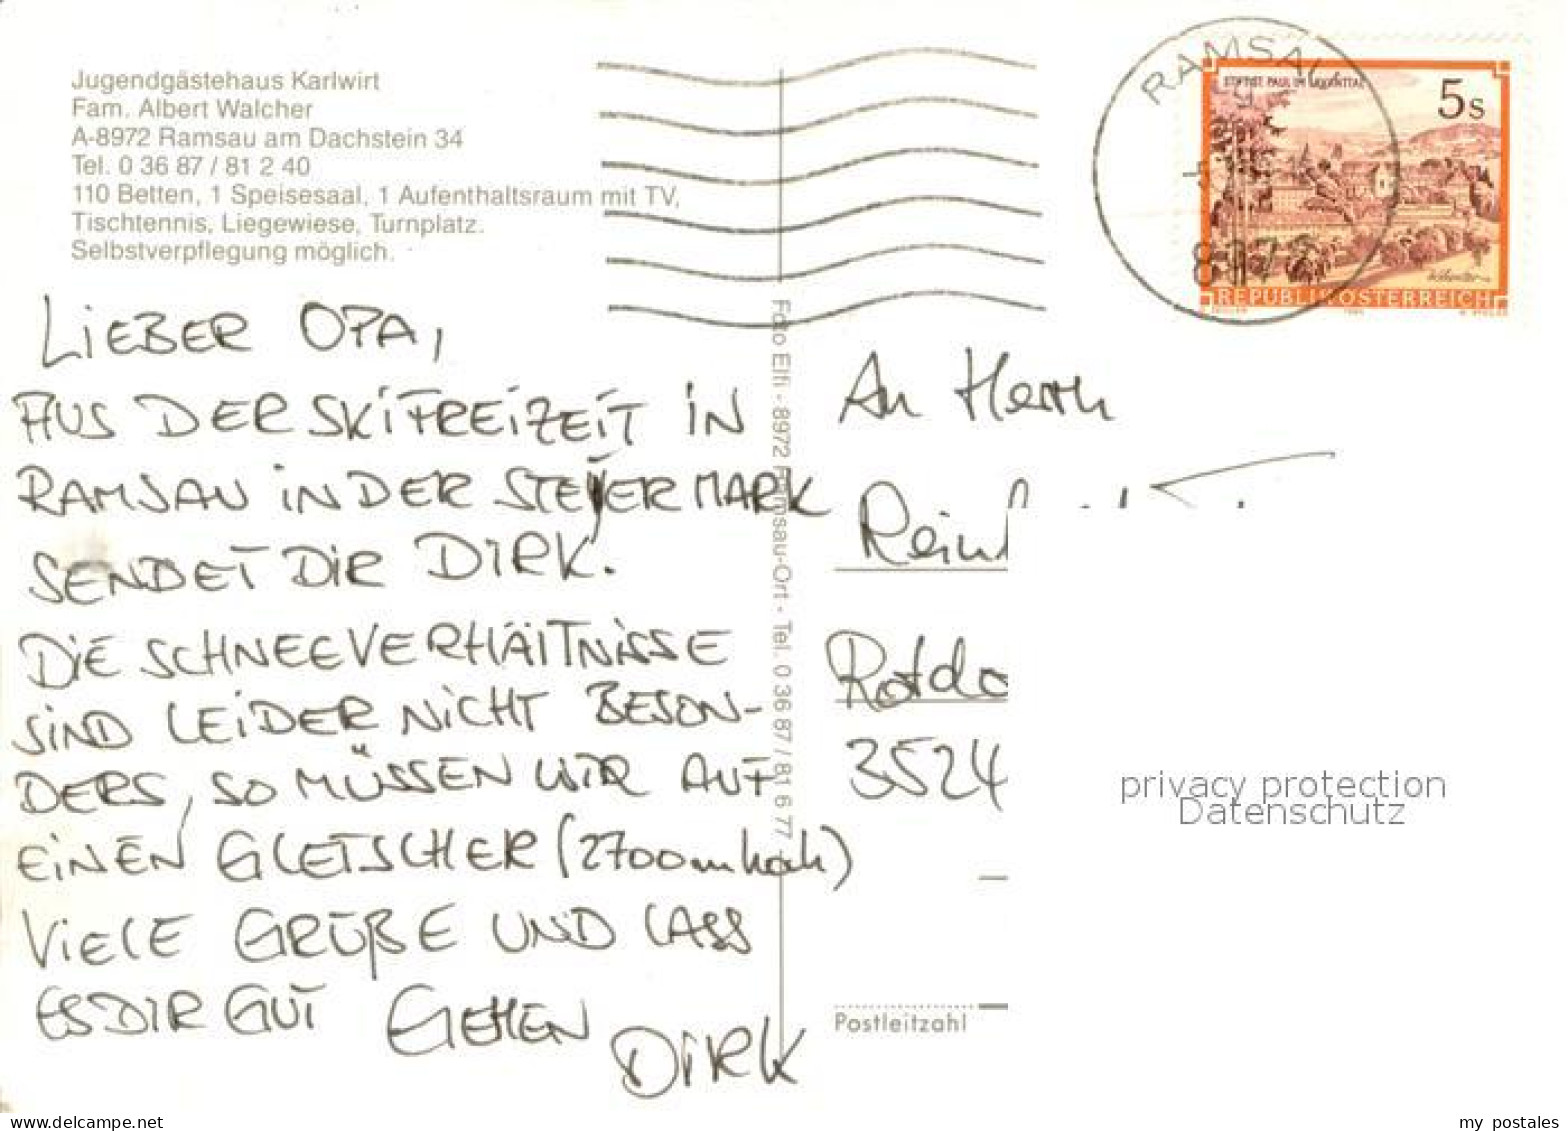 Jugendgästehaus Karlwirt
Fam. Albert Walcher
A-8972 Ramsau am Dachstein 34
Tel. 0 36 87 / 81 2 40
110 Betten, 1 Speisesaal, 1 Aufenthaltsraum mit TV,
Tischtennis, Liegewiese, Turnplatz.
Selbstverpflegung möglich.
LIEBER OPA,
AUS DER SKIFREIZEIT IN
RAMSAU IN DER STEYERMARK
SENDET DIR DIRK.
DIE SCHNEEVERHÄLTNISSE
SIND LEIDER NICHT BESON-
DERS, SO MÜSSEN WIR AUF
EINEN GLETSCHER (2700m hoch)
VIELE GRÜßE UND LASS
ES DIR GUT GEHEN
DIRK
Foto Elfi - 8972 Ramsau-Ort - Tel. 0 36 87 / 81 6 77
RAMSAU
8972
STIFT ST. PAUL IM LAVANTTAL
5 S
REPUBLIK ÖSTERREICH
An Herrn
3524
Postleitzahl
privacy protection
Datenschutz
my postales